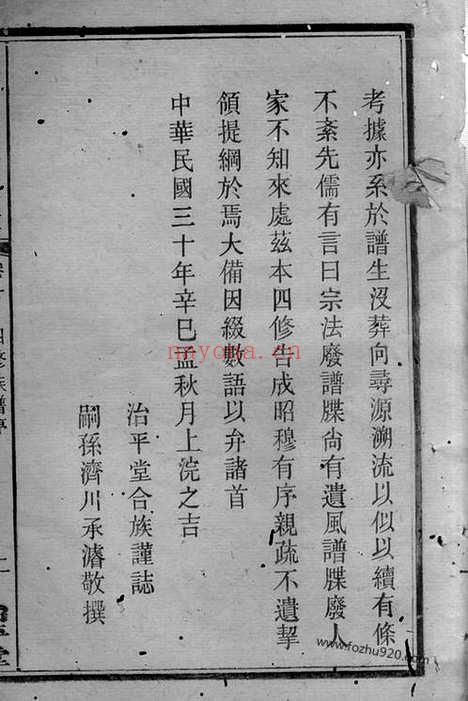 考據亦系於譜生沒葬向尋源溯流以似以續有條
不紊先儒有言曰宗法廢譜牒尙有遺風譜牒廢人
家不知來處茲本四修告成昭穆有序親疏不遺挈
領提綱於焉大備因綴數語以弁諸首
中華民國三十年辛巳孟秋月上浣之吉
治平堂合族謹誌
嗣孫濟川承濬敬撰
四修族譜序
nayona.cn
www.fozhu920.com